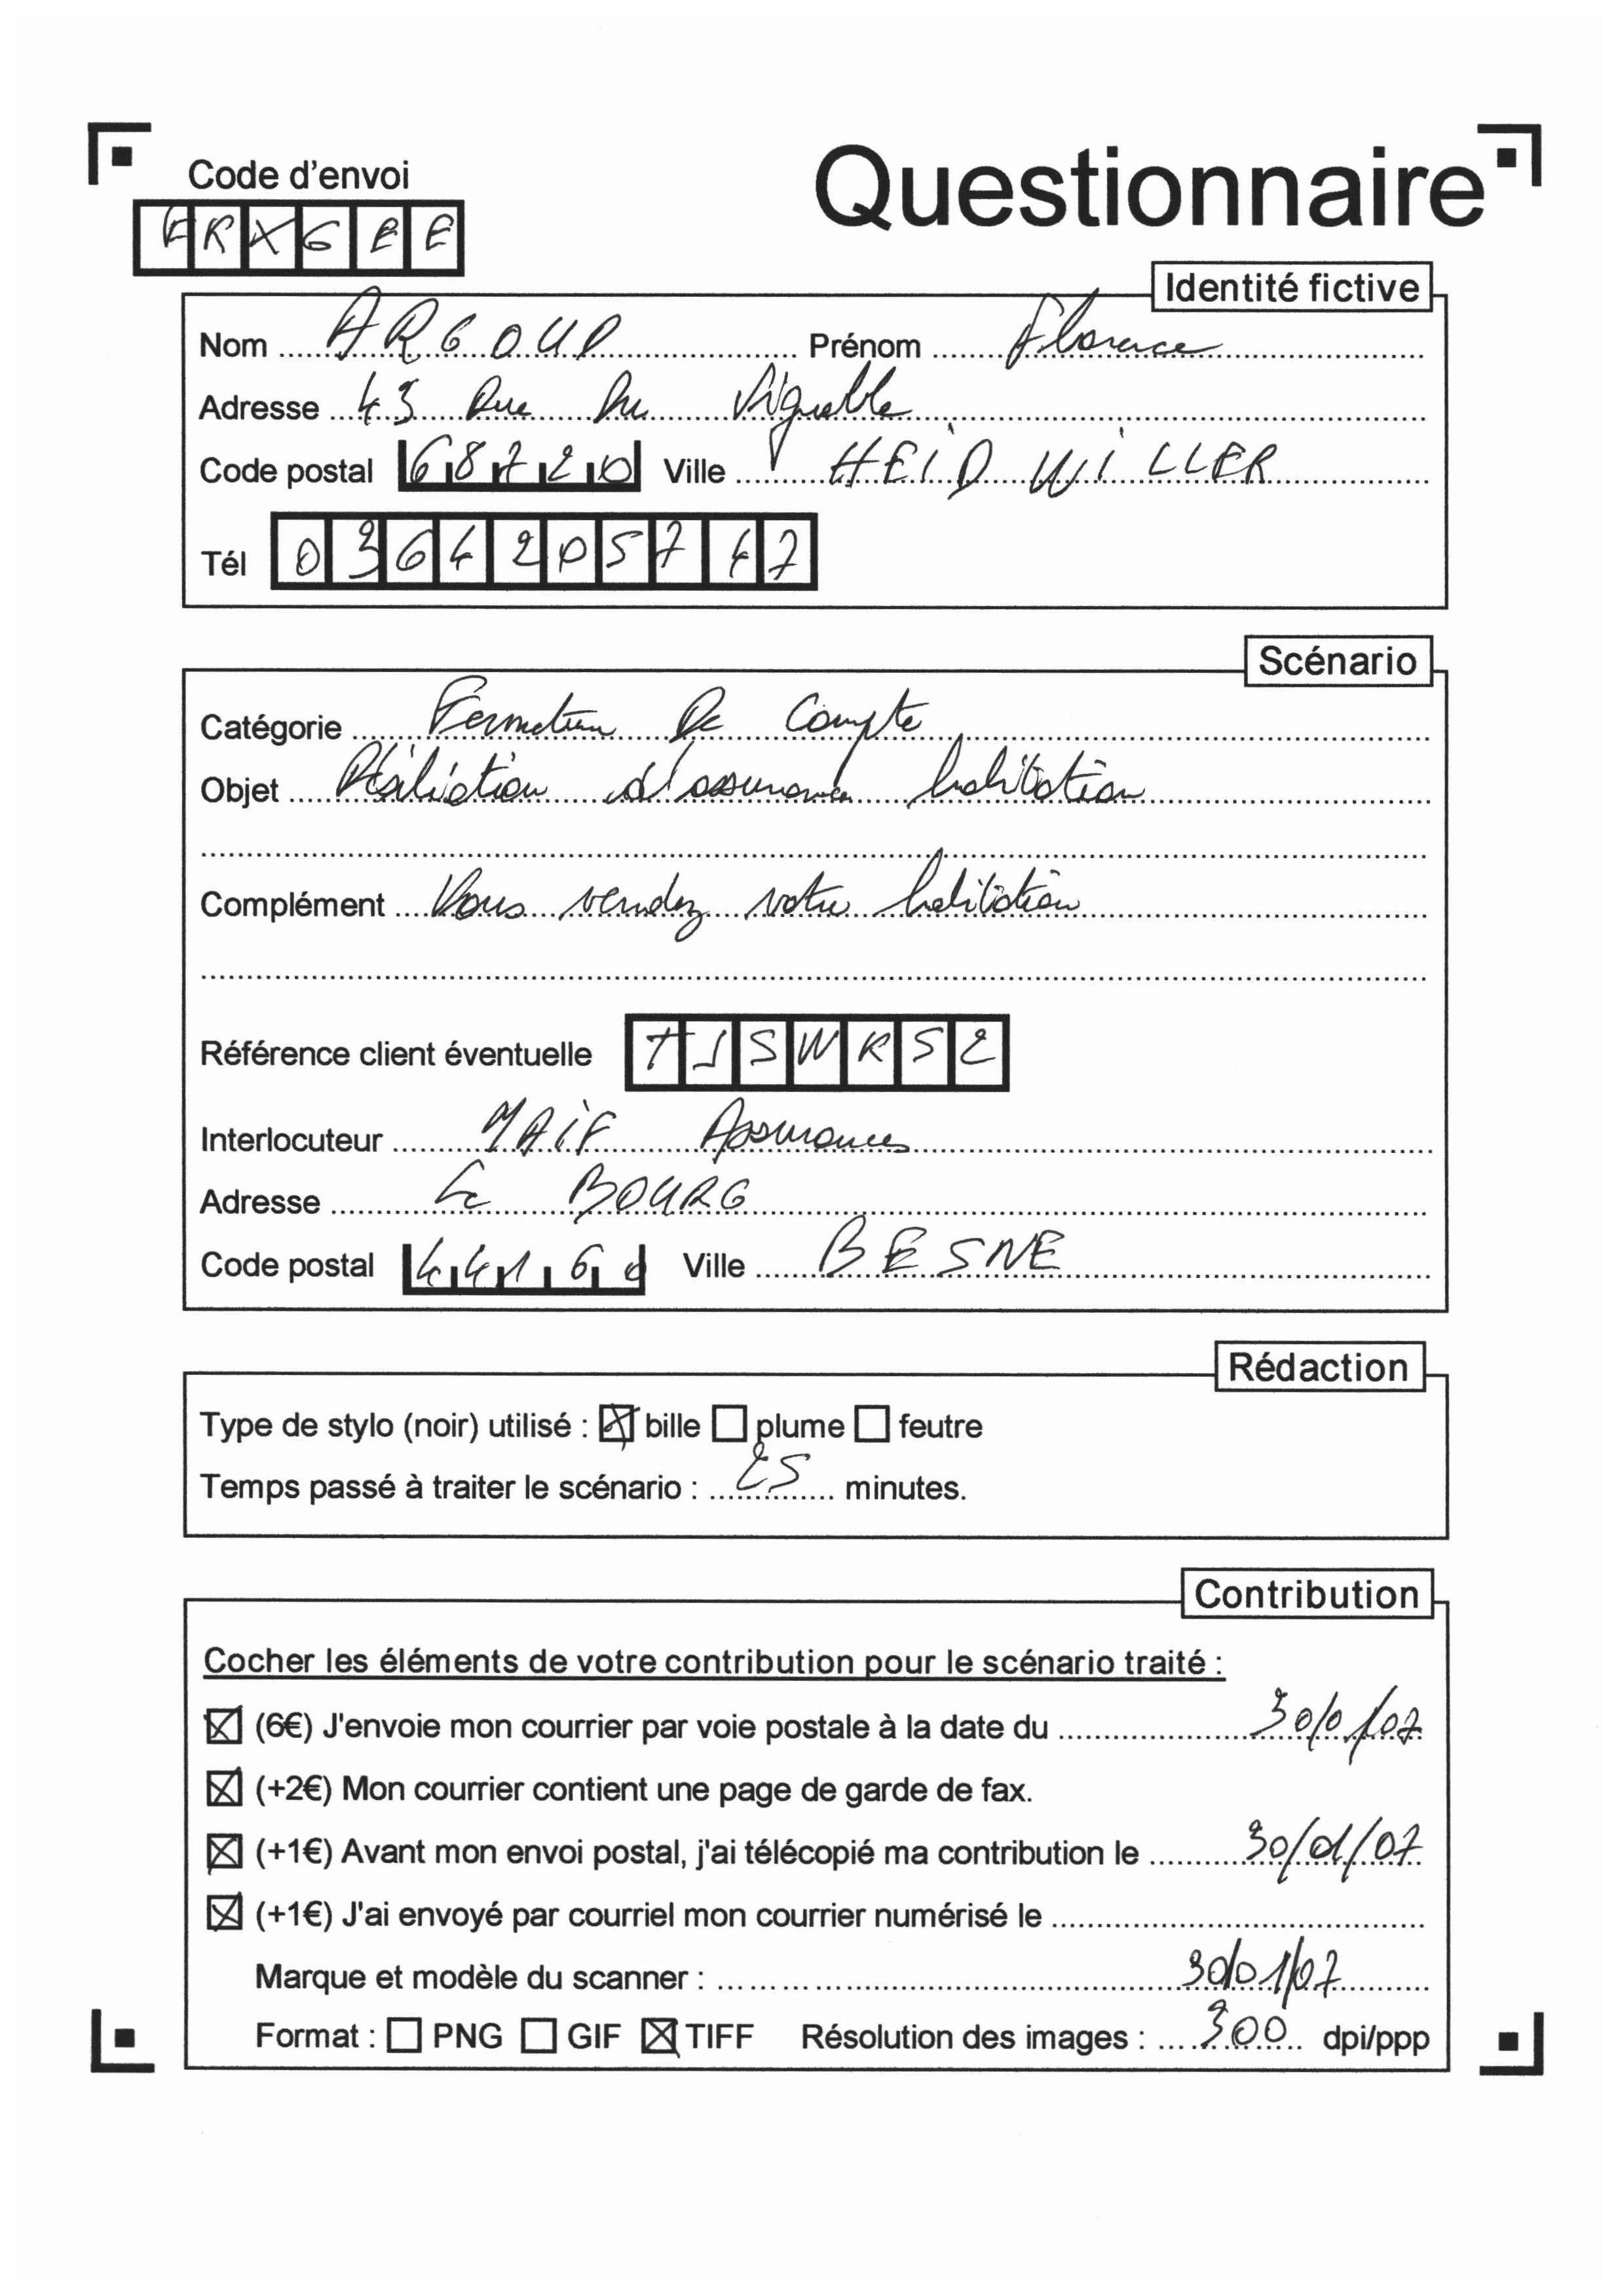 Questionnaire
Code d'envoi
FRXGEE
Identité fictive
Nom ARGOUD Prénom Florence
Adresse 43 Rue Du Vignoble
Code postal 68720 Ville HEIDWILLER
Tél 0364205747
Scénario
Catégorie Fermeture De Compte
Objet Résiliation d'assurance habitation
Complément Vous vendez votre habitation
Référence client éventuelle HJSWKS2
Interlocuteur MAIF Assurances
Adresse Le BOURG
Code postal 44160 Ville BESNE
Rédaction
Type de stylo (noir) utilisé : bille plume feutre
Temps passé à traiter le scénario : 25 minutes.
Contribution
Cocher les éléments de votre contribution pour le scénario traité :
(6€) J'envoie mon courrier par voie postale à la date du 30/01/07
(+2€) Mon courrier contient une page de garde de fax.
(+1€) Avant mon envoi postal, j'ai télécopié ma contribution le 30/01/07
(+1€) J'ai envoyé par courriel mon courrier numérisé le
Marque et modèle du scanner : 30/01/07
Format : PNG GIF TIFF Résolution des images : 300 dpi/ppp